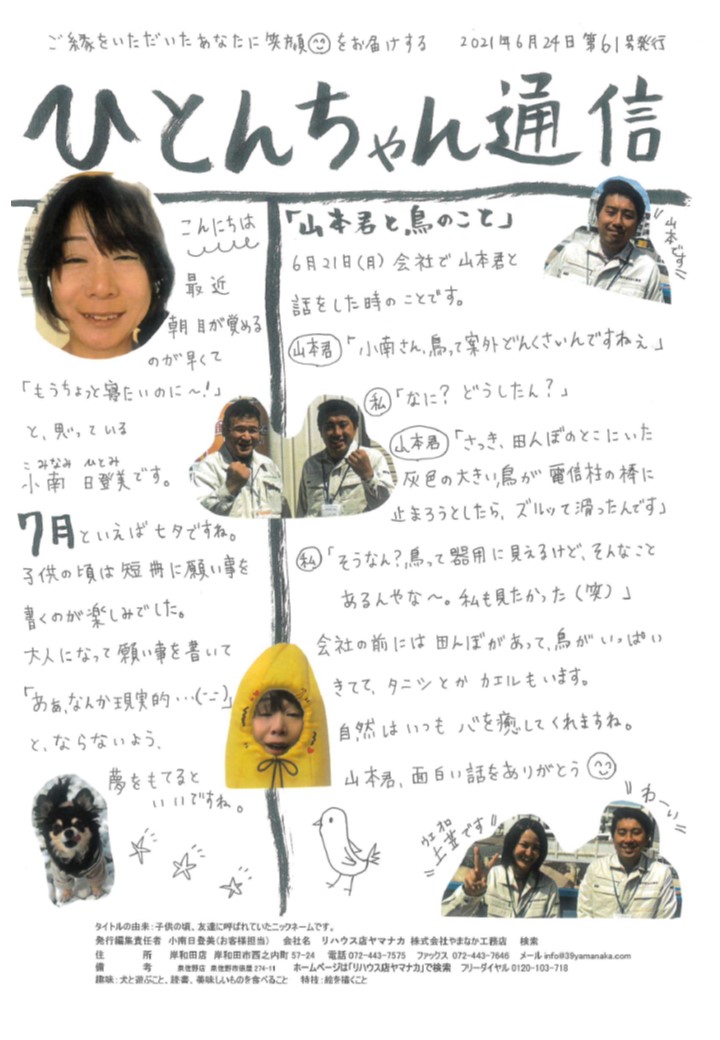 ご縁をいただいたあなたに笑顔をお届けする 2021年6月24日第61号発行
ひとんちゃん通信
こんにちは
最近
朝目が覚める
のが早くて
「もうちょっと寝たいのに〜!」
と、思っている
こみなみ ひとみ
小南 日登美です。
7月といえば七夕ですね。
子供の頃は短冊に願い事を
書くのが楽しみでした。
大人になって願い事を書いて
「あぁ、なんか現実的…(-_-)」
と、ならないよう、
夢をもてると
いいですね。
「山本君と鳥のこと」
山本です
6月21日(月)会社で山本君と
話をした時のことです。
山本君「小南さん、鳥って案外どんくさいんですねぇ」
私「なに?どうしたん?」
山本君「さっき、田んぼのとこにいた
灰色の大きい鳥が電信柱の棒に
止まろうとしたら、ズルッて滑ったんです」
私「そうなん?鳥って器用に見えるけど、そんなこと
あるんやな〜。私も見たかった(笑)」
会社の前には田んぼがあって、鳥がいっぱい
きてて、タニシとかカエルもいます。
自然はいつも心を癒してくれますね。
山本君、面白い話をありがとう
わーい
上並です
タイトルの由来:子供の頃、友達に呼ばれていたニックネームです。
発行編集責任者 小南日登美(お客様担当) 会社名 リハウス店ヤマナカ 株式会社やまなか工務店 検索
住 所 岸和田店 岸和田市西之内町57-24 電話072-443-7575 ファックス 072-443-7646 メール info@39yamanaka.com
備 考 泉佐野店 泉佐野市俵屋274-11 ホームページは「リハウス店ヤマナカ」で検索 フリーダイヤル0120-103-718
趣味:犬と遊ぶこと、読書、美味しいものを食べること 特技:絵を描くこと